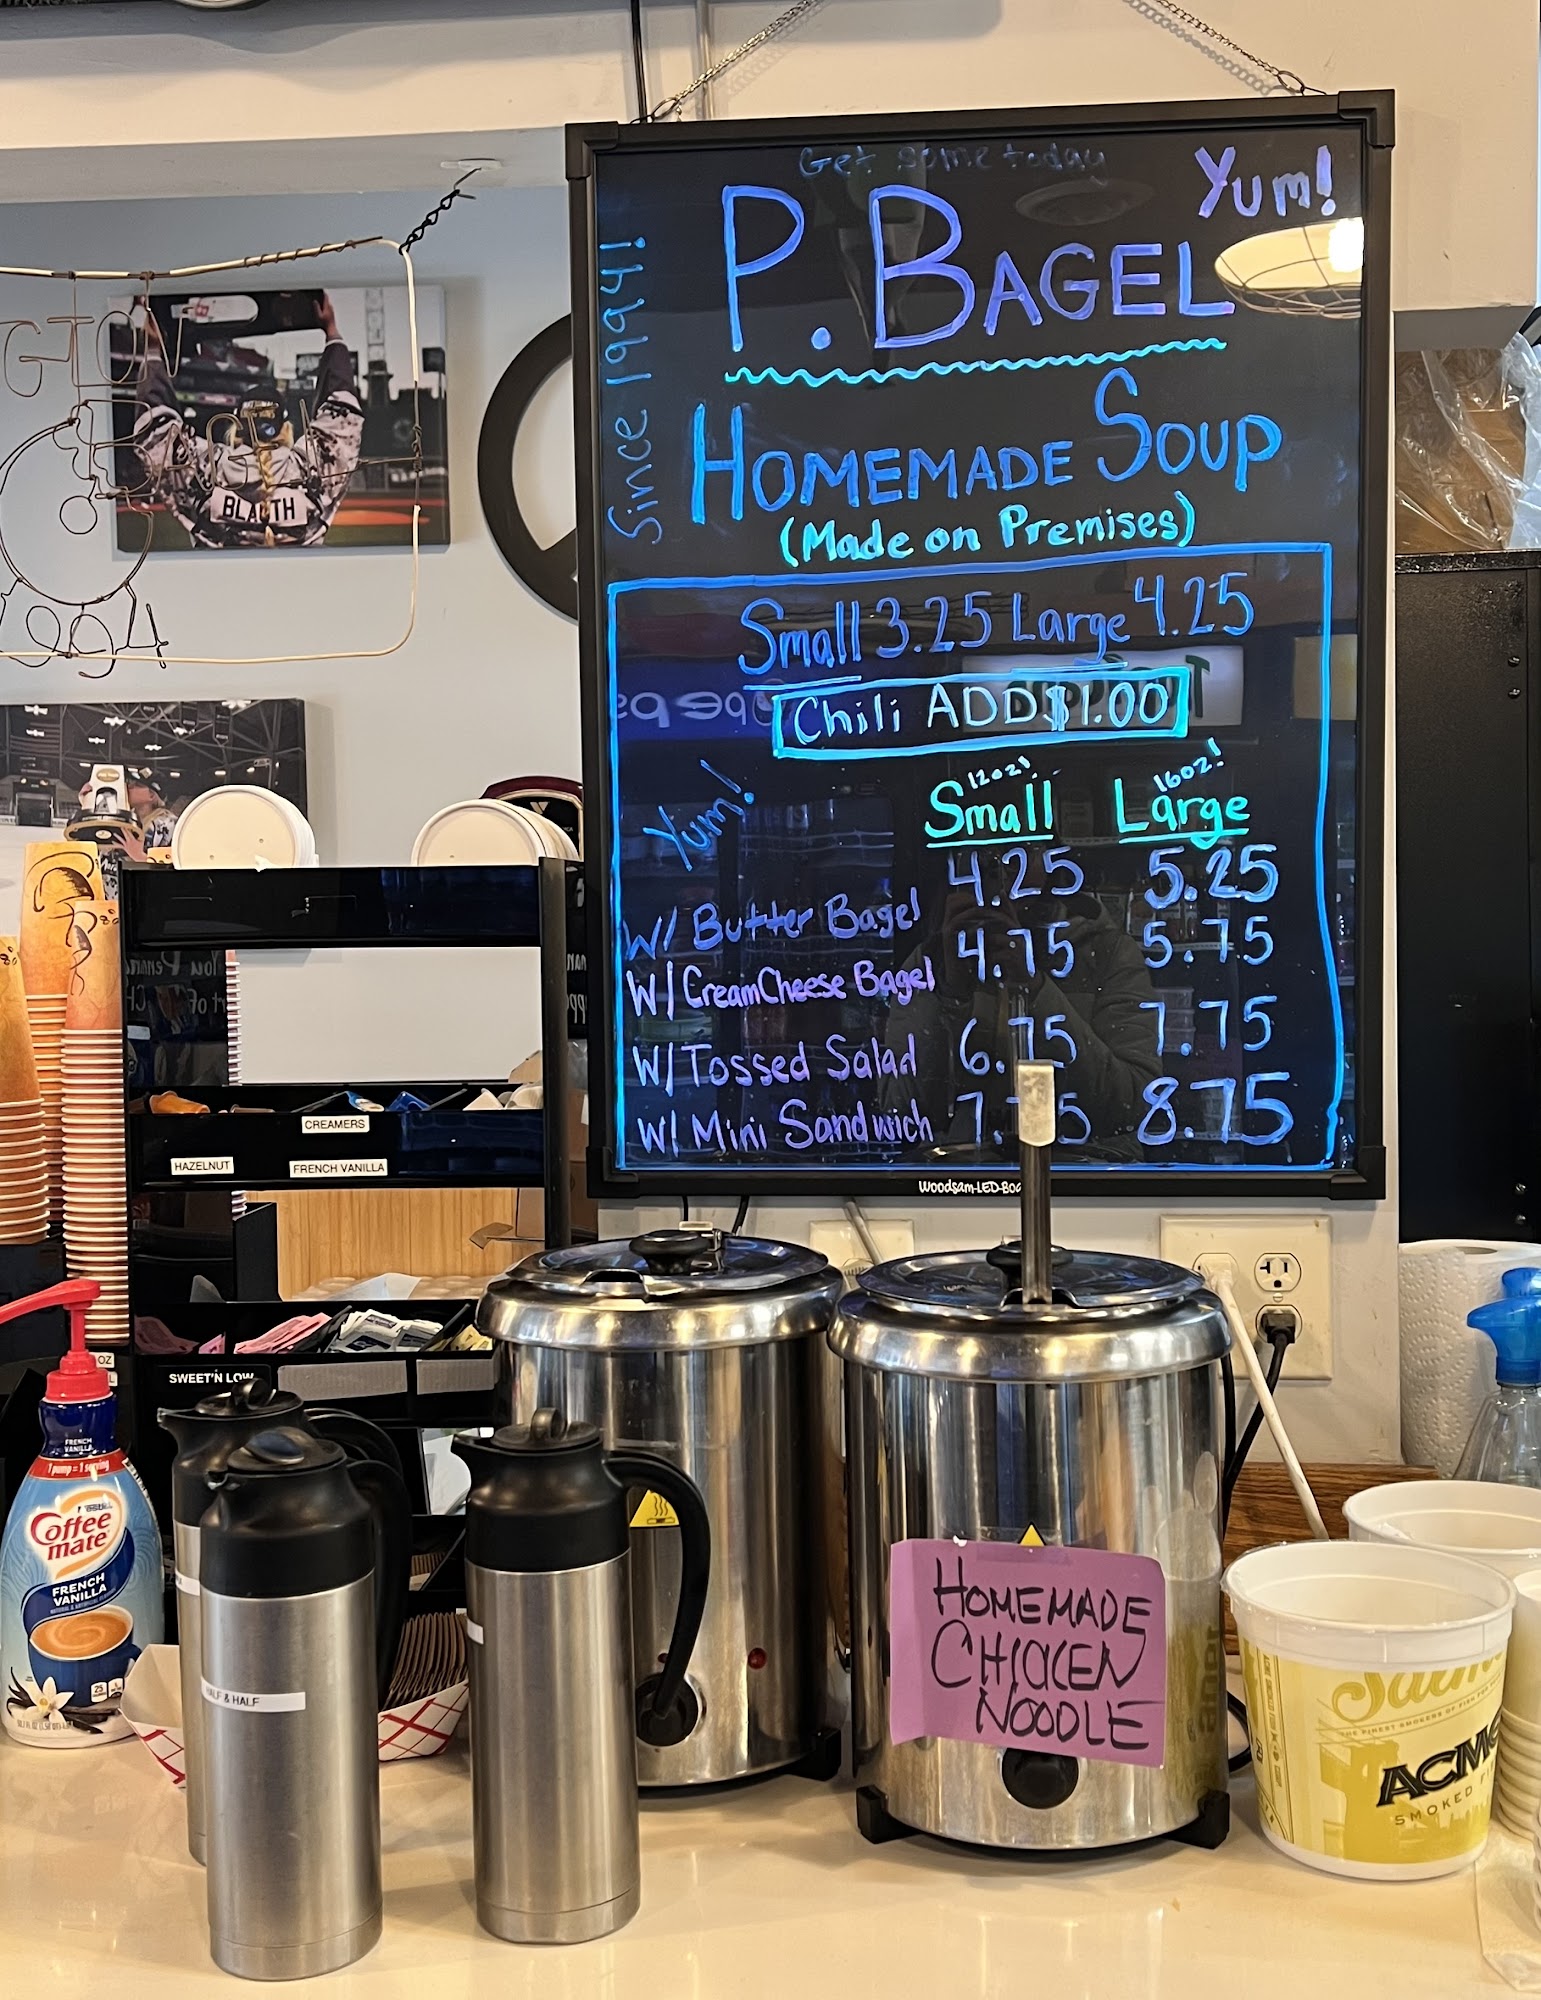 Get some today
Yum!
Since 1994!
P. BAGEL
HOMEMADE SOUP
(Made on Premises)
Small 3.25 Large 4.25
Chili ADD $1.00
Yum!
12oz! 16oz!
Small Large
4.25 5.25
W/ Butter Bagel
4.75 5.75
W/ CreamCheese Bagel
6.75 7.75
W/ Tossed Salad
W/ Mini Sandwich 8.75
Woodsam-LED-Boa
GTON
BAGEL
1994
BLAUTH
CREAMERS
HAZELNUT
FRENCH VANILLA
SWEET'N LOW
OZ
FRENCH
VANILLA
1 pump = 1 serving
Nestlé
Coffee
mate
FRENCH
VANILLA
25
HALF & HALF
HOMEMADE
CHICKEN
NOODLE
THE FINEST SMOKERS OF FISH FOR
ACME
SMOKED FI